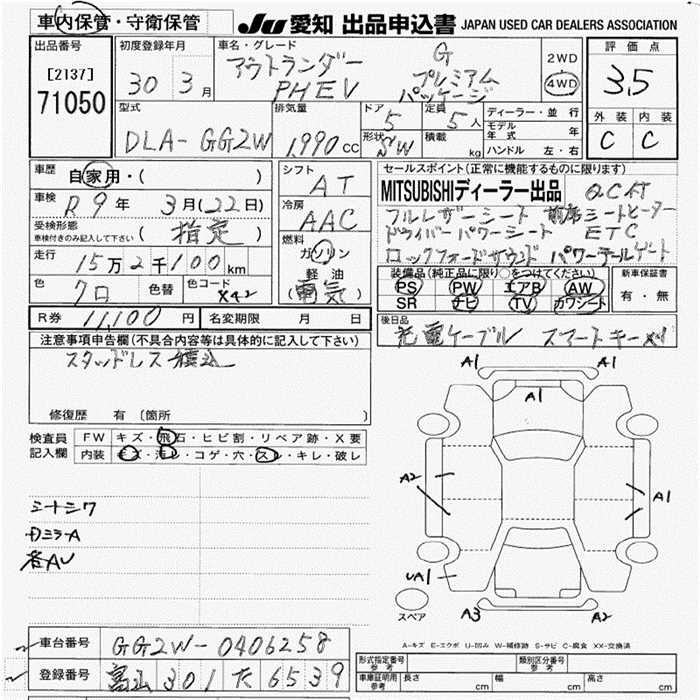 車内保管・守衛保管
JU 愛知 出品申込書 JAPAN USED CAR DEALERS ASSOCIATION
出品番号 [2137] 71050
初度登録年月 30年 3月
車名・グレード アウトランダー PHEV G プレミアム パッケージ
2WD 4WD
評価点 3.5
外装 内装
C C
型式 DLA-GG2W
排気量 1,990 cc
ドア 5
定員 5人
形状 SW
積載 kg
ディーラー・並行
モデル年式 年
ハンドル 左・右
車歴 自家用・( )
車検 R9年 3月(22日)
受検形態 車検付きのみ記入して下さい (指定)
走行 15万2千100km
色 クロ 色替 色コード X42
シフト AT
冷房 AAC
燃料 ガソリン
軽油
(電気)
セールスポイント(正常に機能するものに限ります)
MITSUBISHIディーラー出品 Q.C付
フルレザーシート 前席シートヒーター
ドライバーパワーシート ETC
ロックフォードサウンド パワーテールゲート
装備品(純正品に限り○をつけてください) 新車保証書
PS PW エアB AW 有・無
SR ナビ TV カワシート
R券 11,100円 名変期限 月 日
後日品 充電ケーブル スマートキー
注意事項申告欄(不具合内容等は具体的に記入して下さい)
スタッドレス積込
修復歴 有 〔箇所
検査員記入欄
FW キズ・飛石・ヒビ割・リペア跡・X要
内装 キズ・汚レ・コゲ・穴・スレ・キレ・破レ
シートシワ
カミラーA
各AU
A1 A1
A1
A2
A1
UA1
A3 A2
スペア
A-キズ E-エクボ U-凹み W-補修跡 S-サビ C-腐食 XX-交換済
車台番号 GG2W-0406258
登録番号 富山 301 た 6539
形式指定番号 参考
類別区分番号 参考
車庫証明用 参考 長さ cm 幅 cm 高さ cm